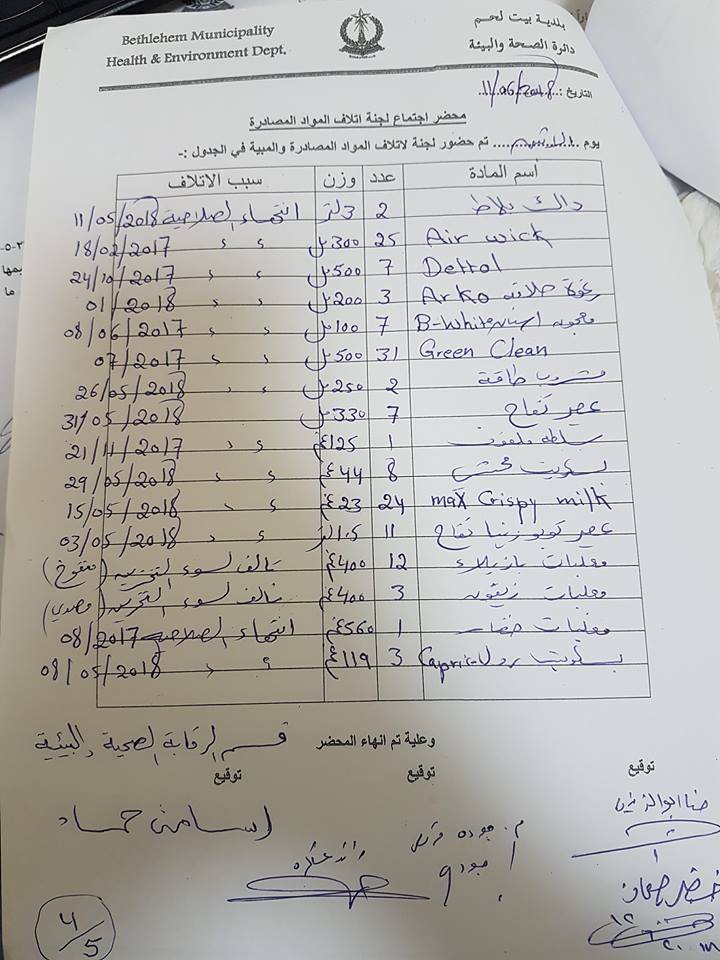 Bethlehem Municipality
Health & Environment Dept.
بلدية بيت لحم
دائرة الصحة والبيئة
التاريخ : 11/06/2018
محضر اجتماع لجنة اتلاف المواد المصادرة
يوم ........ تم حضور لجنة لاتلاف المواد المصادرة والمبية في الجدول :-
أسم المادة عدد وزن سبب الاتلاف
بلاط 2 3 لتر انتهاء الصلاحية 11/05/2018
Air wick 25 300 مل ء ء 18/02/2017
Dettol 7 500 مل ء ء 24/10/2017
رغوة حلاقة Arko 3 200 مل ء ء 01/2018
معجون اسنان B-White 7 100 مل ء ء 08/06/2017
Green Clean 31 500 مل ء ء 07/2017
مشروب طاقة 2 250 مل ء ء 26/05/2018
عصير تفاح 7 330 مل 31/05/2018
سلطة ملفوف 1 125 غم ء ء 21/11/2017
بسكويت محشي 8 44 غم ء ء 29/05/2018
max Crispy milk 24 23 غم ء ء 15/05/2018
عصير تفاح 11 1.5 لتر ء ء 03/05/2018
معلبات بازيلاء 12 400 غم تالف لسوء التخزين (منفوخ)
معلبات زيتون 3 400 غم تالف لسوء التخزين (مصدي)
معلبات 1 560 غم انتهاء الصلاحية 08/2017
بسكويت رول Caprice 3 119 غم ء ء 08/05/2018
وعلية تم انهاء المحضر قسم الرقابة الصحية والبيئية
توقيع توقيع توقيع
اسامة حماد
4/5